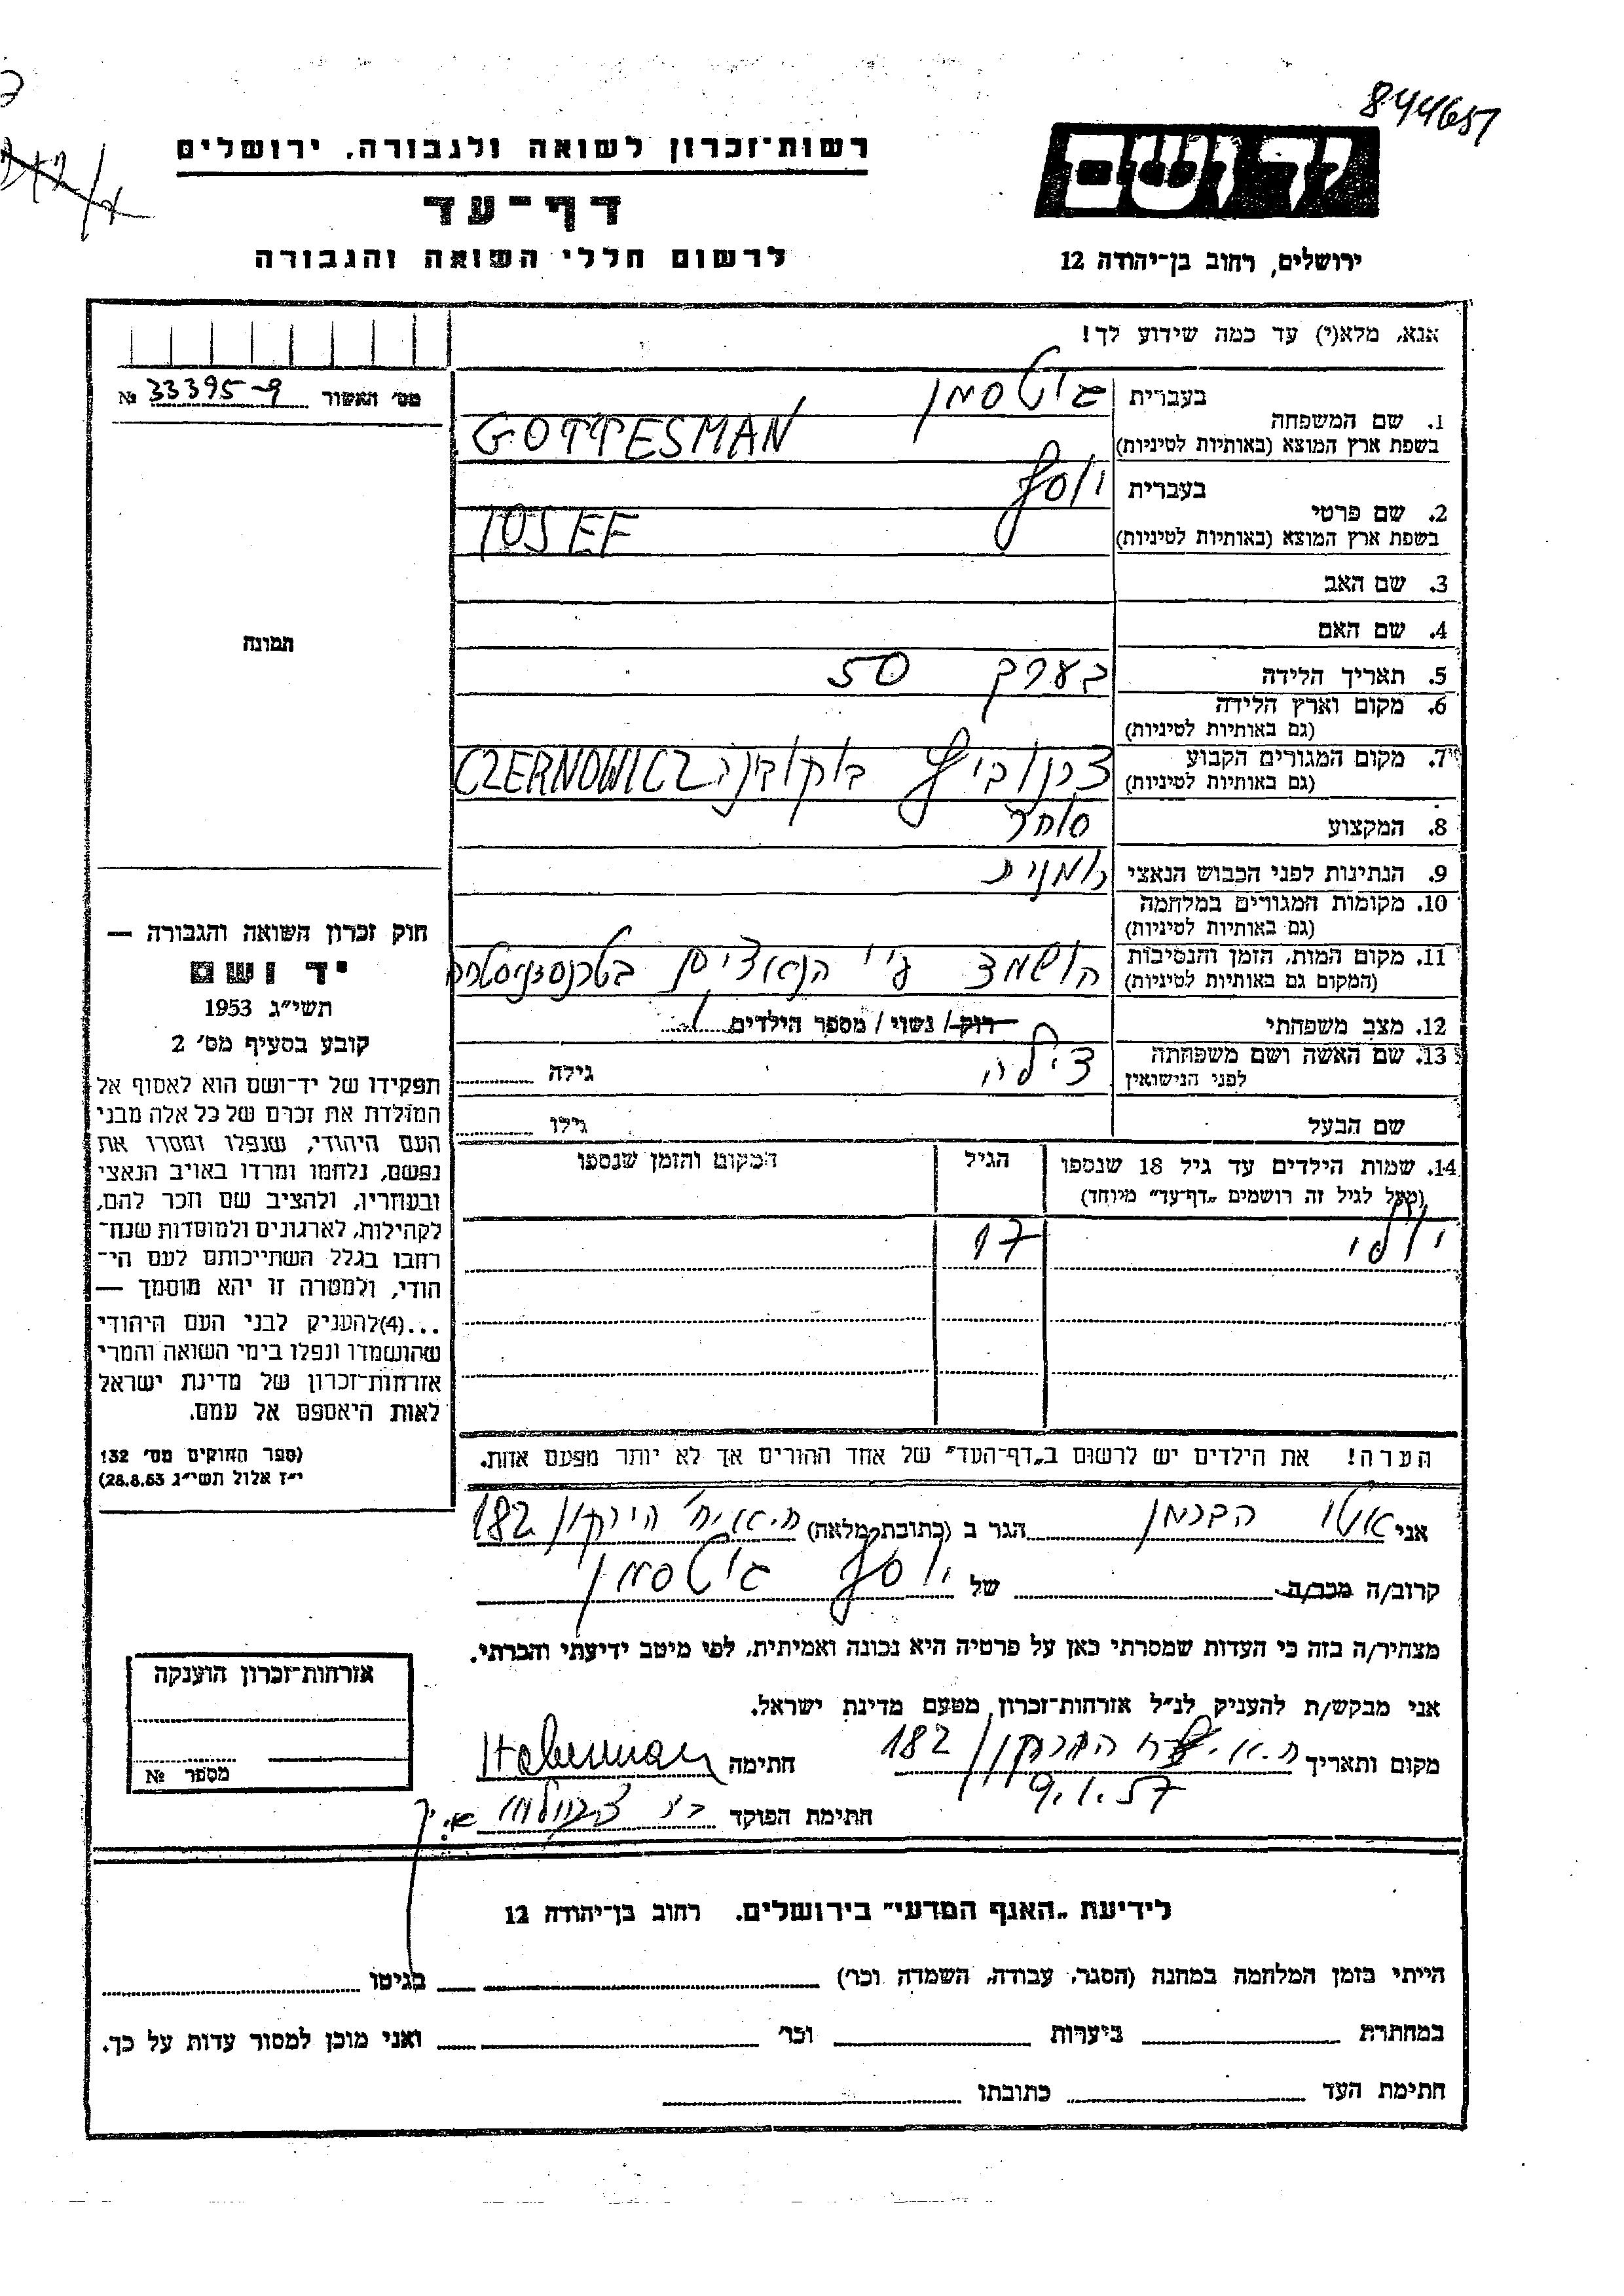 844651
רשות־זכרון לשואה ולגבורה, ירושלים
דף־עד
לרשום חללי השואה והגבורה
יד ושם
ירושלים, רחוב בן־יהודה 12
אנא, מלא(י) עד כמה שידוע לך!
מס׳ האשור № 33395-9
1. שם המשפחה
בעברית גוטסמן
בשפת ארץ המוצא (באותיות לטיניות) GOTTESMAN
2. שם פרטי
בעברית יוסף
בשפת ארץ המוצא (באותיות לטיניות) IOSEF
3. שם האב
4. שם האם
5. תאריך הלידה בערך 50
6. מקום וארץ הלידה
(גם באותיות לטיניות)
7. מקום המגורים הקבוע צרנוביץ בוקובינה CZERNOWICZ
(גם באותיות לטיניות)
8. המקצוע סוחר
9. הנתינות לפני הכבוש הנאצי רומנית
10. מקומות המגורים במלחמה
(גם באותיות לטיניות)
11. מקום המות, הזמן והנסיבות הושמד ע״י הנאצים בטרנסניסטריה
(המקום גם באותיות לטיניות)
12. מצב משפחתי רווק / נשוי / מספר הילדים 1
13. שם האשה ושם משפחתה צילה גילה
לפני הנישואין
שם הבעל גילו
14. שמות הילדים עד גיל 18 שנספו הגיל המקום והזמן שנספו
(מעל לגיל זה רושמים „דף־עד״ מיוחד)
יולי 17
הערה! את הילדים יש לרשום ב„דף־העד״ של אחד ההורים אך לא יותר מפעם אחת.
תמונה
חוק זכרון השואה והגבורה —
יד ושם
תשי״ג 1953
קובע בסעיף מס׳ 2
תפקידו של יד־ושם הוא לאסוף אל
המולדת את זכרם של כל אלה מבני
העם היהודי, שנפלו ומסרו את
נפשם, נלחמו ומרדו באויב הנאצי
ובעוזריו, ולהציב שם וזכר להם,
לקהילות, לארגונים ולמוסדות שנח־
רבו בגלל השתייכותם לעם הי־
הודי, ולמטרה זו יהא מוסמך —
...(4) להעניק לבני העם היהודי
שהושמדו ונפלו בימי השואה והמרי
אזרחות־זכרון של מדינת ישראל
לאות היאספם אל עמם.
(ספר החוקים מס׳ 132
י״ז אלול תשי״ג 28.8.53)
אני אוטו הברמן הגר ב (כתובת מלאה) ת.א. רח׳ הירקון 182
קרוב/ה מכר/ה של יוסף גוטסמן
מצהיר/ה בזה כי העדות שמסרתי כאן על פרטיה היא נכונה ואמיתית, לפי מיטב ידיעתי והכרתי.
אני מבקש/ת להעניק לנ״ל אזרחות־זכרון מטעם מדינת ישראל.
מקום ותאריך ת.א. הירקון 182 חתימה Haberman
9.1.57
חתימת הפוקד
אזרחות־זכרון הוענקה
מספר №
לידיעת „האגף המדעי״ בירושלים. רחוב בן־יהודה 12
הייתי בזמן המלחמה במחנה (הסגר, עבודה, השמדה וכו׳) בגיטו
במחתרת ביערות וכו׳ ואני מוכן למסור עדות על כך.
חתימת העד כתובתו